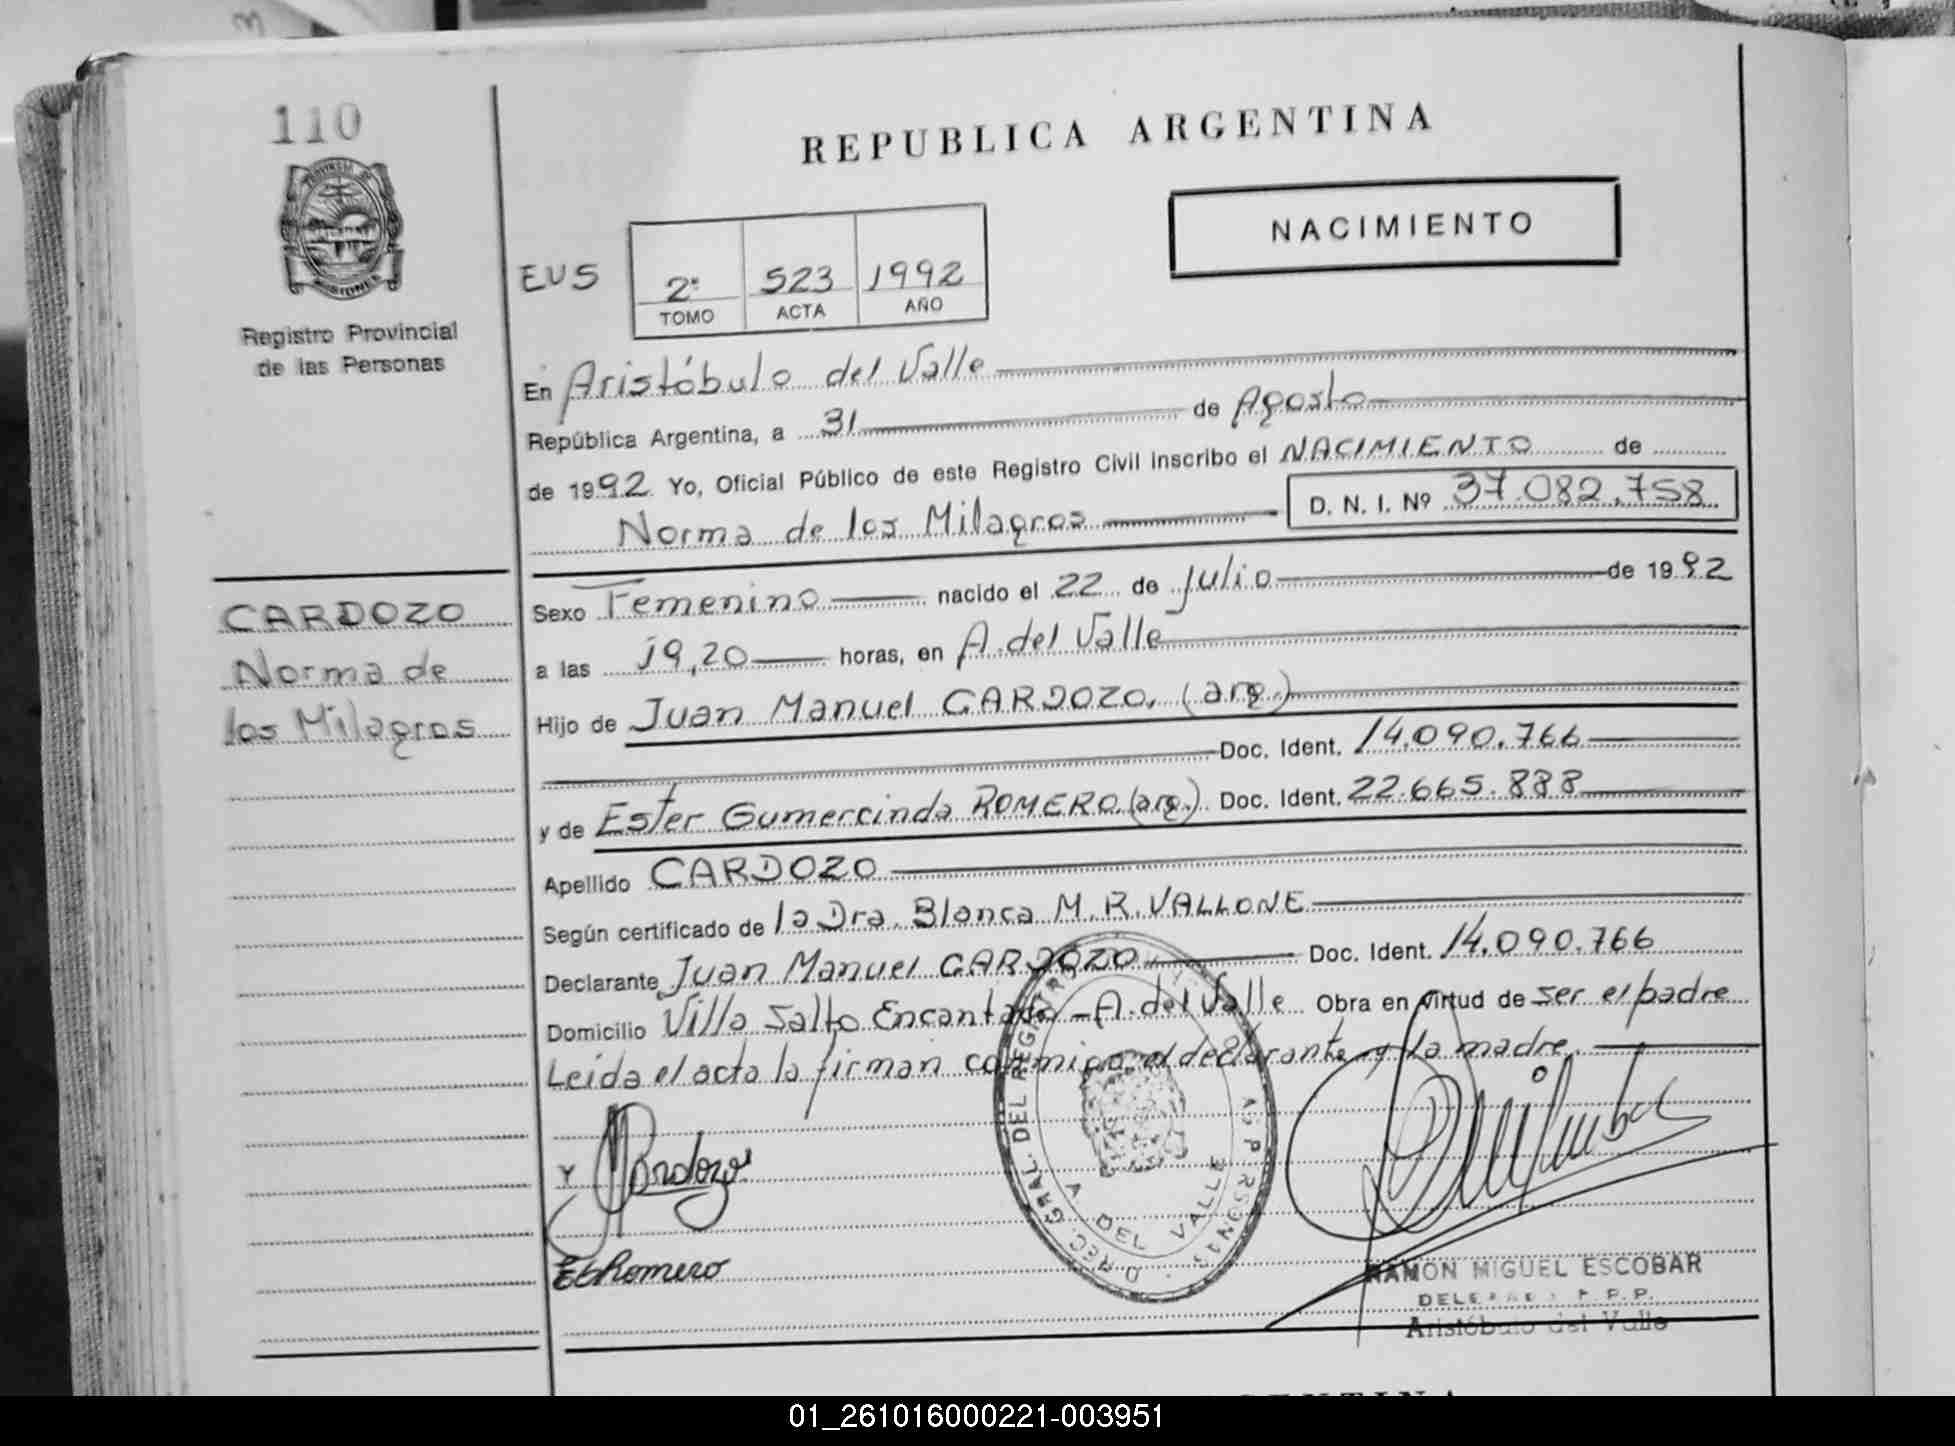 110
REPUBLICA ARGENTINA
NACIMIENTO
PROVINCIA DE
MISIONES
Registro Provincial
de las Personas
EU5
2º 523 1992
TOMO ACTA AÑO
En Aristóbulo del Valle
República Argentina, a 31 de Agosto
de 1992 Yo, Oficial Público de este Registro Civil inscribo el NACIMIENTO de
Norma de los Milagros D. N. I. Nº 37.082.758
CARDOZO
Norma de
los Milagros
Sexo Femenino nacido el 22 de Julio de 1992
a las 19,20 horas, en A. del Valle
Hijo de Juan Manuel CARDOZO. (arg.)
Doc. Ident. 14.090.766
y de Ester Gumercinda ROMERO (arg.) Doc. Ident. 22.665.888
Apellido CARDOZO
Según certificado de la Dra. Blanca M. R. VALLONE
Declarante Juan Manuel CARDOZO Doc. Ident. 14.090.766
Domicilio Villa Salto Encantado - A. del Valle Obra en virtud de ser el padre
Leida el acta la firman conmigo el declarante y la madre.
Y Cardozo
E G Romero
DEL VALLE
RAMON MIGUEL ESCOBAR
Aristóbulo del Valle
01_261016000221-003951